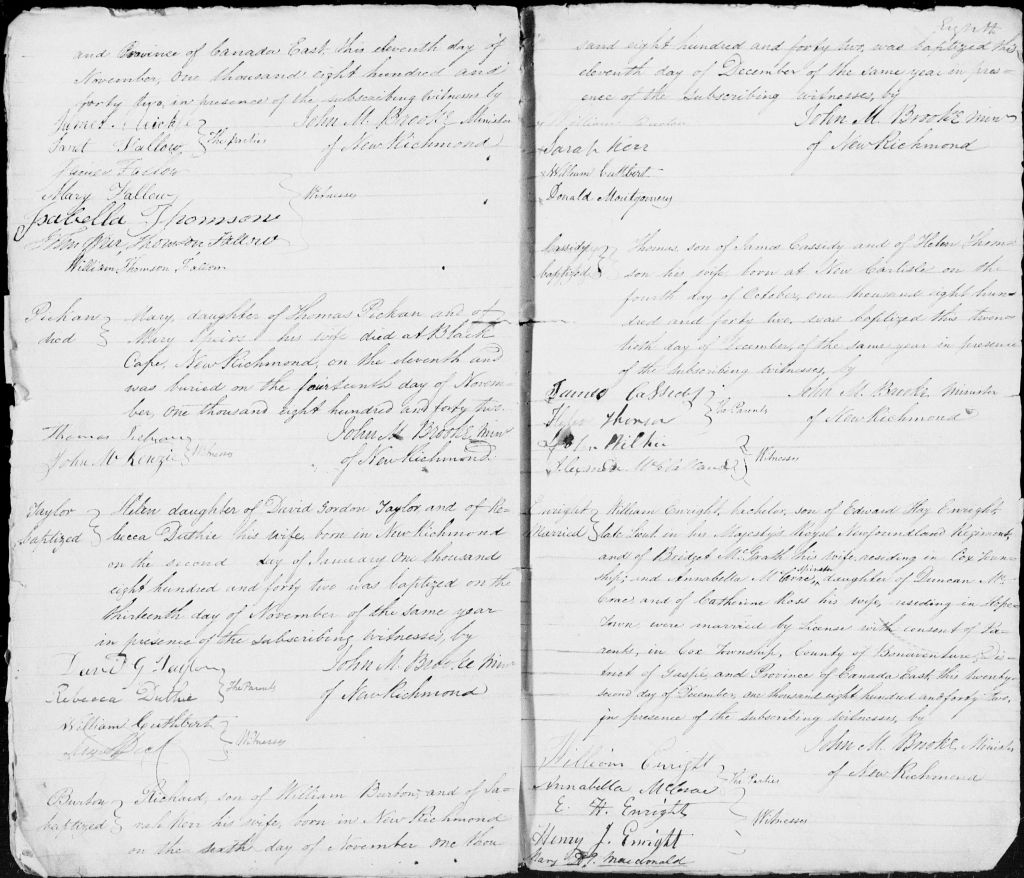 and Province of Canada East, this eleventh day of
November, one thousand eight hundred and
forty two, in presence of the subscribing witnesses by
James John M. Brooke Minister
Janet Fallow The Parties of New Richmond
James Fallow
Mary Fallow Witnesses
Isabella Thomson
John Weir Thomson Fallow
William Thomson Fallow
Pichan Mary, daughter of Thomas Pichan and of
died Mary Speirs his wife died at Black
Cape, New Richmond, on the eleventh and
was buried on the fourteenth day of Novem-
ber, one thousand eight hundred and forty two.
Thomas John M. Brooke, Minr
John McKenzie Witness of New Richmond
Taylor Helen daughter of David Gordon Taylor and of Re-
baptized becca Duthie his wife, born in New Richmond
on the second day of January one thousand
eight hundred and forty two was baptized on the
thirteenth day of November of the same year
in presence of the subscribing witnesses, by
David G Taylor John M. Brooke Minr
Rebecca Duthie The Parents of New Richmond
William Cuthbert
Witnesses
Burton Richard, son of William Burton, and of Sa-
baptized rah Kerr his wife, born in New Richmond
on the sixth day of November one thou
Eighth
sand eight hundred and forty two, was baptized this
eleventh day of December of the same year in pres-
ence of the subscribing witnesses, by
William Burton John M. Brooke Minr
Sarah Kerr of New Richmond
William Cuthbert
Donald Montgomery
Cassidy Thomas, son of James Cassidy and of Helen Thom-
baptized son his wife born at New Carlisle on the
fourth day of October, one thousand eight hun-
dred and forty two, was baptized this twen-
tieth day of December, of the same year in presence
of the subscribing witnesses, by
James Cassedy John M. Brooke, Minister
Thomson The Parents of New Richmond
Wilkie
Witnesses
Enright William Enright, bachelor, son of Edward Hay Enright,
Married late Lieut. in his Majesty's Royal Newfoundland Regiment,
and of Bridget McGrath his wife, residing in Cox Town-
ship; and Annabella McCrae, spinster daughter of Duncan Mc
Crae and of Catherine Ross his wife, residing in Hope
Town were married by License with consent of Pa-
rents, in Cox Township, County of Bonaventure, Dis-
trict of Gaspé, and Province of Canada East, this twenty
second day of December, one thousand eight hundred and forty two,
in presence of the subscribing witnesses, by
William Enright John M. Brooke, Minister
Annabella McCrae The Parties of New Richmond
E. H. Enright
Witnesses
Henry J. Enright
Mary Macdonald